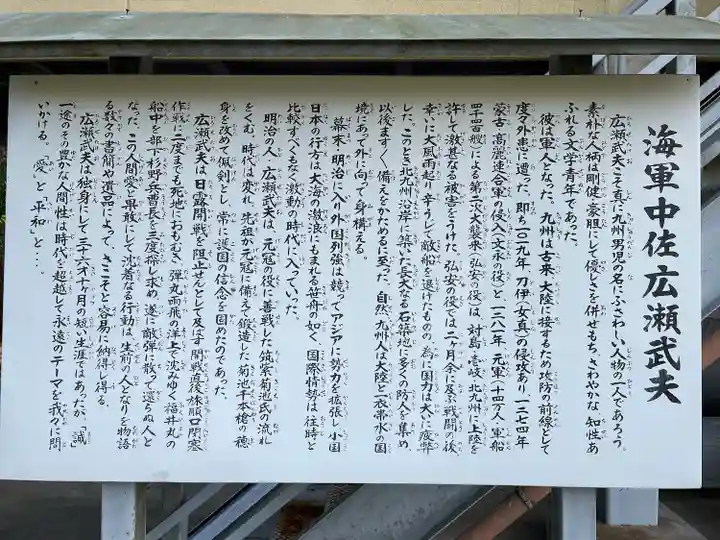 海軍中佐広瀬武夫
広瀬武夫こそ真に九州男児の名にふさわしい人物の一人であろう。
素朴な人柄は剛健、豪胆にして優しさを併せもち、さわやかな知性あ
ふれる文学青年であった。
彼は軍人となった。九州は古来、大陸に接するため、国防の前線として
度々外患に遭った。即ち一〇一九年、刀伊(女真)の侵攻あり、一二七四年
蒙古・高麗連合軍の侵入(文永の役)と一二八一年、元軍(十四万人、軍船
四千四百艘)による第二次大襲来(弘安の役)は、対島・壱岐、北九州に上陸を
許して激甚なる被害をうけた。弘安の役では二ヶ月余に及ぶ戦闘の後
幸いに大風雨起り辛うじて敵船を退けたものの、為に国力は大いに疲弊
した。このとき北九州沿岸に築いた長大なる石築地に多くの防人を集め
以後ますます、備えをかためるに至った。自然、九州人は大陸と一衣帯水の国
境にあって外に向って身構える。
幕末、明治に入り外国列強は競ってアジアに勢力を拡張し小国
日本の行方は大海の激浪にもまれる笹舟の如く、国際情勢は往時と
比較すべくもなく激動の時代に入っていった。
明治の人、広瀬武夫は、元寇の役に善戦した筑紫菊池氏の流れ
をくむ。時代は変れ、先祖が元寇に備えて鍛造した菊池千本槍の穂
身を改めて佩剣とし、常に護国の信念を固めたのであった。
広瀬武夫は日露開戦を阻止せんとして及ばず開戦直後旅順口閉塞
作戦に二度までも死地におもむき、弾丸雨飛の洋上で沈みゆく福井丸の
船中を部下杉野兵曹長を三度探し求め、遂に敵弾に散って還らぬ人と
なった。この人間愛と果敢にして沈着なる行動は、生前の人となりを物語
る数々の書簡や遺品によって、さこそと容易に納得し得る。
広瀬武夫は独身にして三十六才十ヶ月の短い生涯ではあったが、「誠」
一途のその豊かな人間性は時代を超越して永遠のテーマを我々に問
いかける。「愛」と「平和」と・・・。